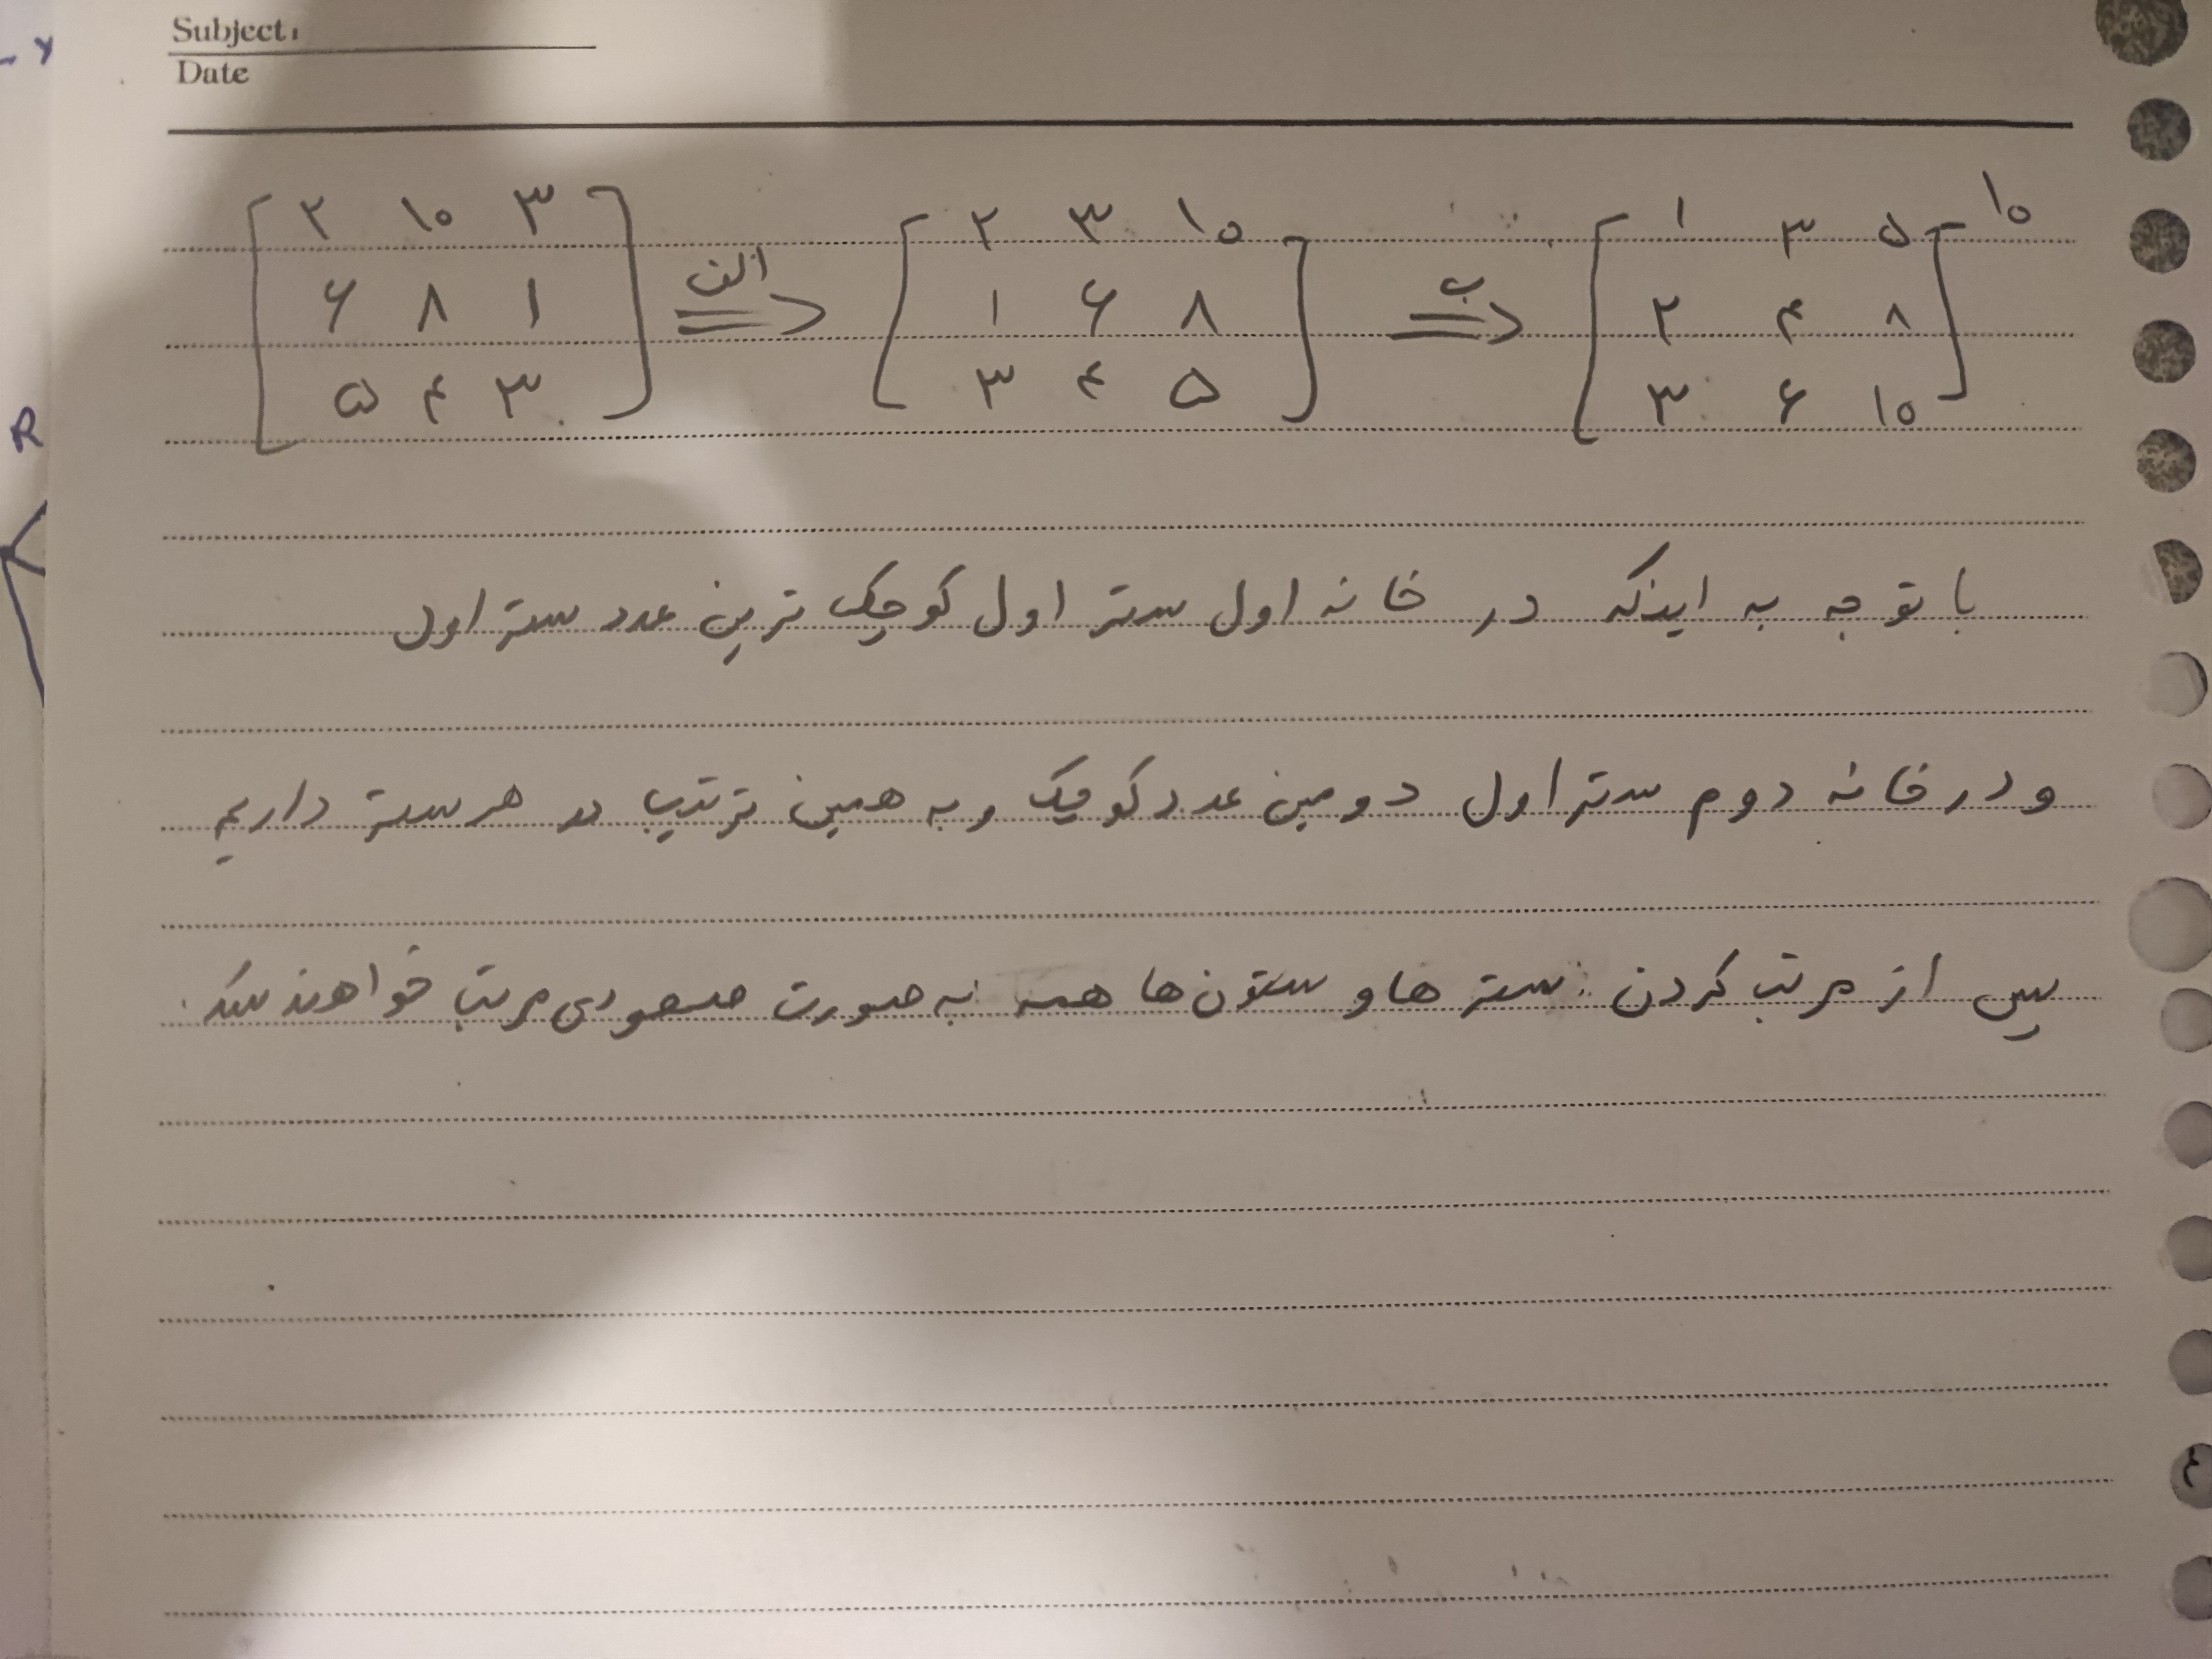 Subject:
Date
۱۰
[۲ ۱۰ ۳] الف => [۲ ۳ ۱۰] ب => [۱ ۳ ۵]
[۶ ۸ ۱] [۱ ۶ ۸] [۲ ۴ ۸]
[۵ ۴ ۳] [۳ ۴ ۵] [۳ ۶ ۱۰]
R
با توجه به اینکه در خانه اول سطر اول کوچک ترین عدد سطر اول
و در خانه دوم سطر اول دومین عدد کوچک و به همین ترتیب در هر سطر داریم
پس از مرتب کردن سطر ها و ستون ها همه به صورت صعودی مرتب خواهند شد.